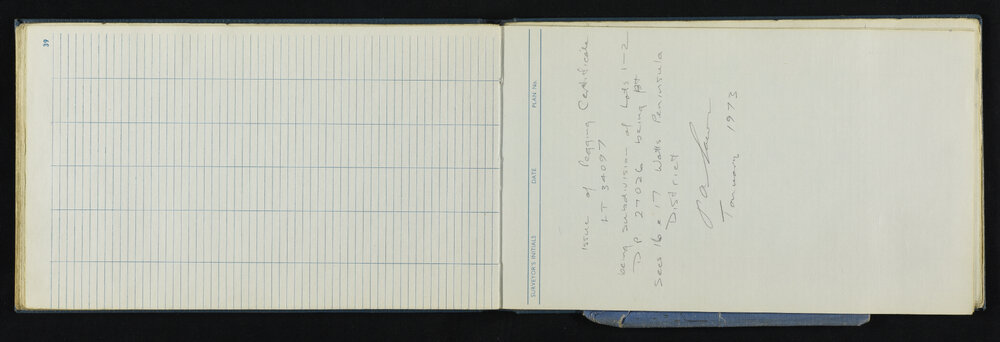 39
SURVEYOR'S INITIALS DATE PLAN No.
Issue of Pegging Certificate
LT 34097
being subdivision of Lots 1-2
DP 27026 being pt
Secs 16 & 17 Watts Peninsula
District
January 1973